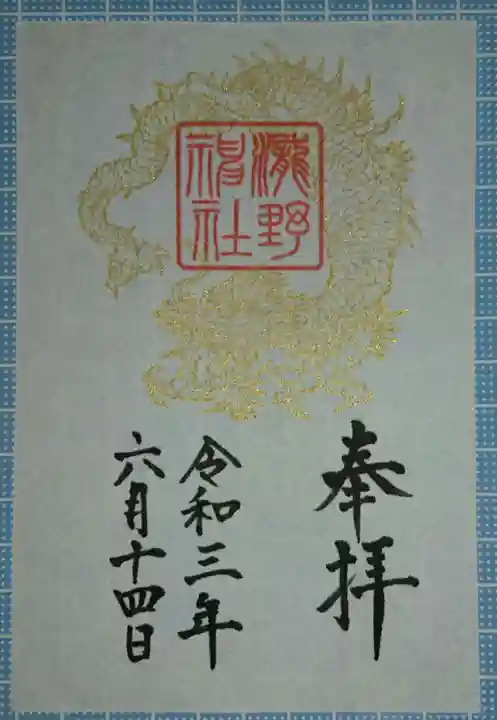 奉拝
瀧野
神社
令和三年
六月十四日